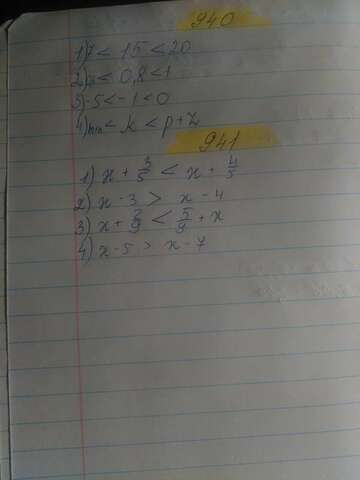 940
1) 7 < 15 < 20
2) < 0,8 < 1
3) -5 < -1 < 0
4) < k < p + z
941
1) x + 3/5 < x + 4/5
2) x - 3 > x - 4
3) x + 2/9 < 5/9 + x
4) x - 5 > x - 7